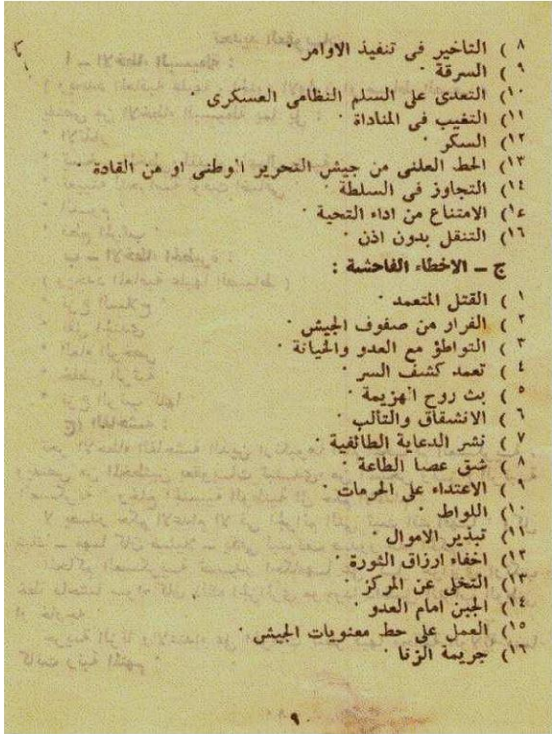 ٨ ) التاخير فى تنفيذ الاوامر ٠
٩ ) السرقة ٠
١٠) التعدى على السلم النظامى العسكرى ٠
١١) التغيب فى المناداة ٠
١٢) السكر ٠
١٣) الحط العلنى من جيش التحرير الوطنى او من القادة ٠
١٤) التجاوز فى السلطة ٠
١٤) الامتناع من اداء التحية ٠
١٦) التنقل بدون اذن ٠
ج – الاخطاء الفاحشة :
١ ) القتل المتعمد ٠
٢ ) الفرار من صفوف الجيش ٠
٣ ) التواطؤ مع العدو والخيانة ٠
٤ ) تعمد كشف السر ٠
٥ ) بث روح الهزيمة ٠
٦ ) الانشقاق والتألب ٠
٧ ) نشر الدعاية الطائفية ٠
٨ ) شق عصا الطاعة ٠
٩ ) الاعتداء على الحرمات ٠
١٠) اللواط ٠
١١) تبذير الاموال ٠
١٢) اخفاء ارزاق الثورة ٠
١٣) التخلى عن المركز ٠
١٤) الجبن امام العدو ٠
١٥) العمل على حط معنويات الجيش ٠
١٦) جريمة الزنا ٠
٩